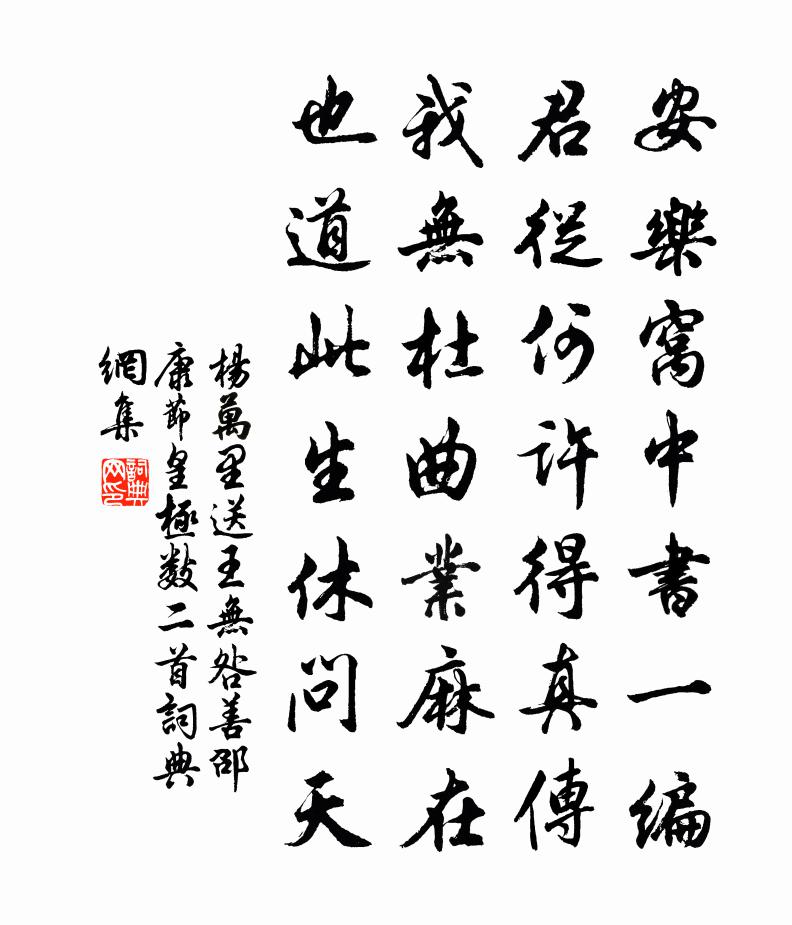 安樂窩中書一編
君從何許得真傳
我無杜曲業麻在
也道此生休問天
楊萬里送王無咎善邵
康節皇極數二首詞典
網集
詞典网印